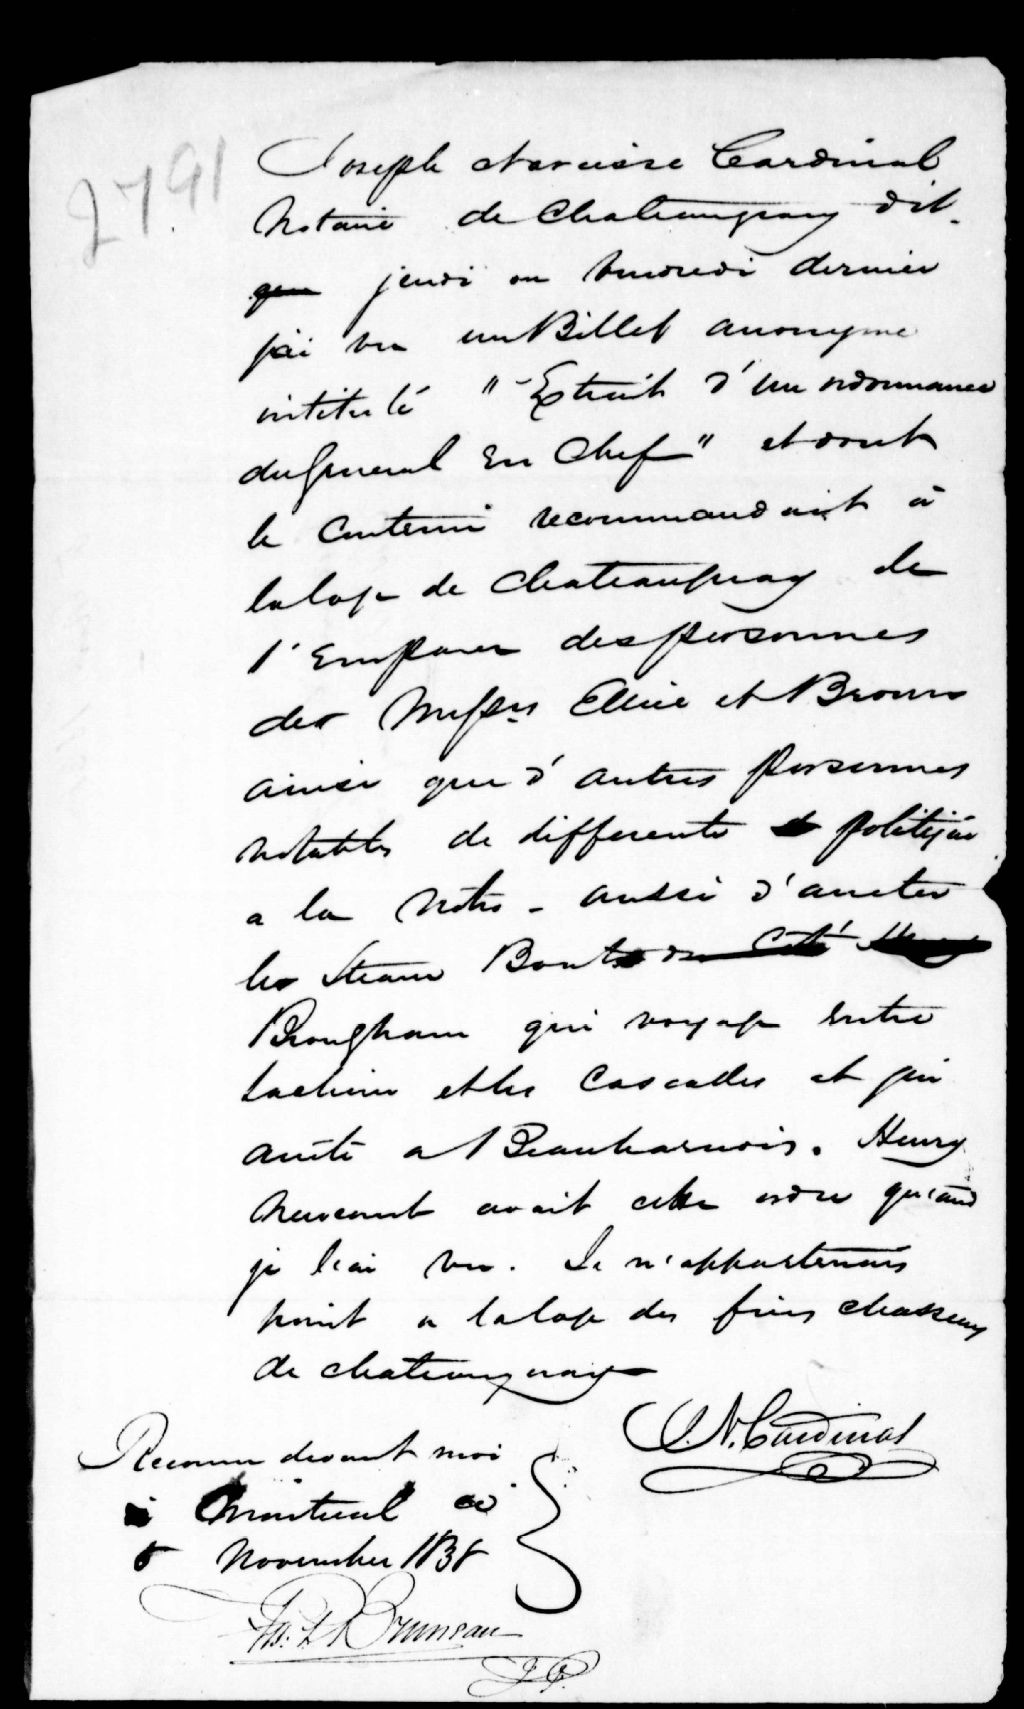 2791
Joseph Narcisse Cardinal
Notaire de Chateauguay dit
que jeudi ou vendredi dernier
j'ai vu un Billet anonyme
intitulé "Extrait d'un ordonnance
du General En Chef" et dont
le Contenu recommandait à
la loge de Chateauguay de
s'Emparer des personnes
des Messrs Ellice et Brown
ainsi que d'autres personnes
notables de differente
a la Notre - aussi d'arreter
les Steam Boats
Brougham qui voyage entre
Lachine et les Cascades et qui
arrête a Beauharnois. Henry
Newcomb avait cette ordre quand
je l'ai vu. Je n'appartenais
point a la loge des freres chasseurs
de chateauguay
J. N. Cardinal
Reconnu devant moi
à Montreal ce
November 1838
Bruneau
J.P.